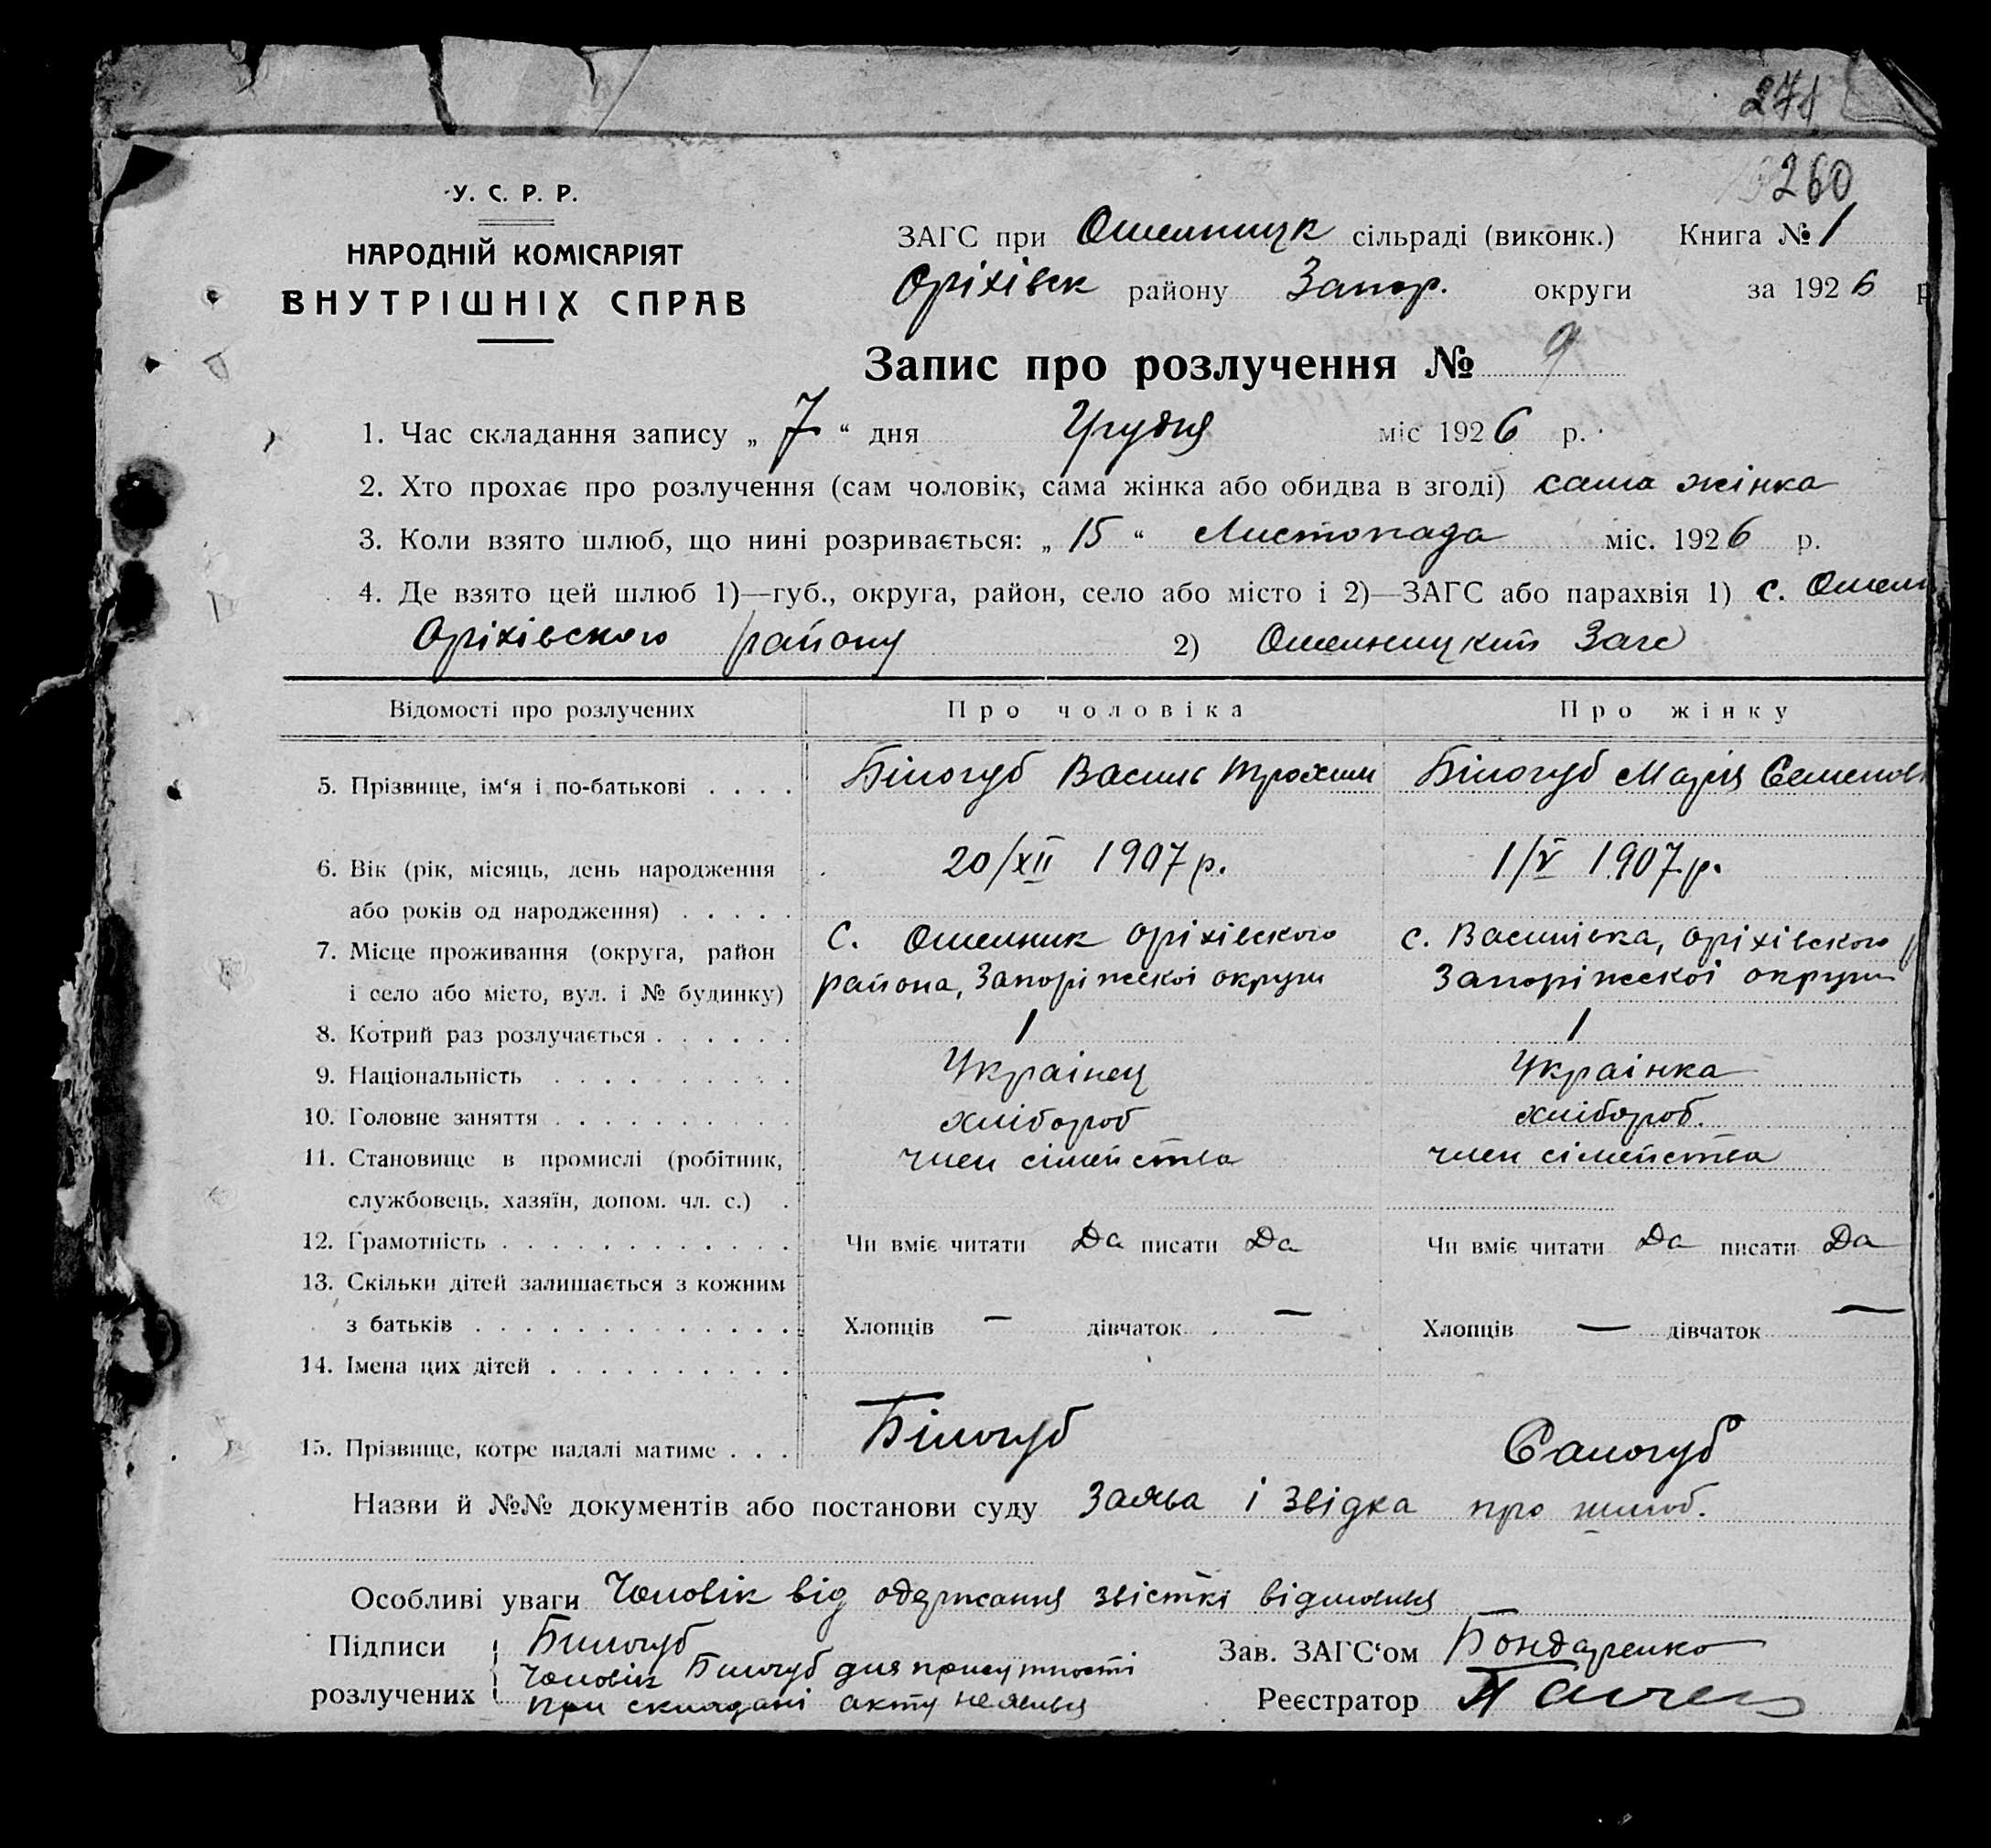 271
260
У. С. Р. Р.
НАРОДНІЙ КОМІСАРІЯТ
ВНУТРІШНІХ СПРАВ
ЗАГС при Омельницк сільраді (виконк.) Книга № 1
Оріхівск району Запор. округи за 1926 р
Запис про розлучення № 9
1. Час складання запису „ 7 “ дня Грудня міс 1926 р.
2. Хто прохає про розлучення (сам чоловік, сама жінка або обидва в згоді) сама жінка
3. Коли взято шлюб, що нині розривається: „ 15 “ Листопада міс. 1926 р.
4. Де взято цей шлюб 1)—губ., округа, район, село або місто і 2)—ЗАГС або парахвія 1) с. Омельн
Оріхівского району 2) Омельницкий Загс
Відомості про розлучених Про чоловіка Про жінку
5. Прізвище, ім‘я і по-батькові . . . . Білогуб Василь Трохим Білогуб Марія Семенов
6. Вік (рік, місяць, день народження 20/XII 1907 р. 1/V 1907 р.
або років од народження) . . . . .
7. Місце проживання (округа, район с. Омелник Оріхівского с. Василівка, Оріхівского р
і село або місто, вул. і № будинку) района, Запоріжскоі округи Запоріжскоі округи
8. Котрий раз розлучається . . . . . . 1 1
9. Національність . . . . . . . . . . Украінец Украінка
10. Головне заняття . . . . . . . . . . хлібороб хлібороб.
11. Становище в промислі (робітник, член сімейства член сімейства
службовець, хазяїн, допом. чл. с.) .
12. Грамотність . . . . . . . . . . . . Чи вміє читати Да писати Да Чи вміє читати Да писати Да
13. Скільки дітей залишається з кожним
з батьків . . . . . . . . . . . . . . Хлопців — дівчаток — Хлопців — дівчаток —
14. Імена цих дітей . . . . . . . . . .
15. Прізвище, котре надалі матиме . . . Білогуб Салогуб
Назви й №№ документів або постанови суду Заява і звідка про шлюб.
Особливі уваги Чоловік від одержання звісткі відмовився
Підписи Білогуб Зав. ЗАГС‘ом Бондаренко
Чоловік Білогуб для присутності
розлучених при складані акту неявився Реєстратор